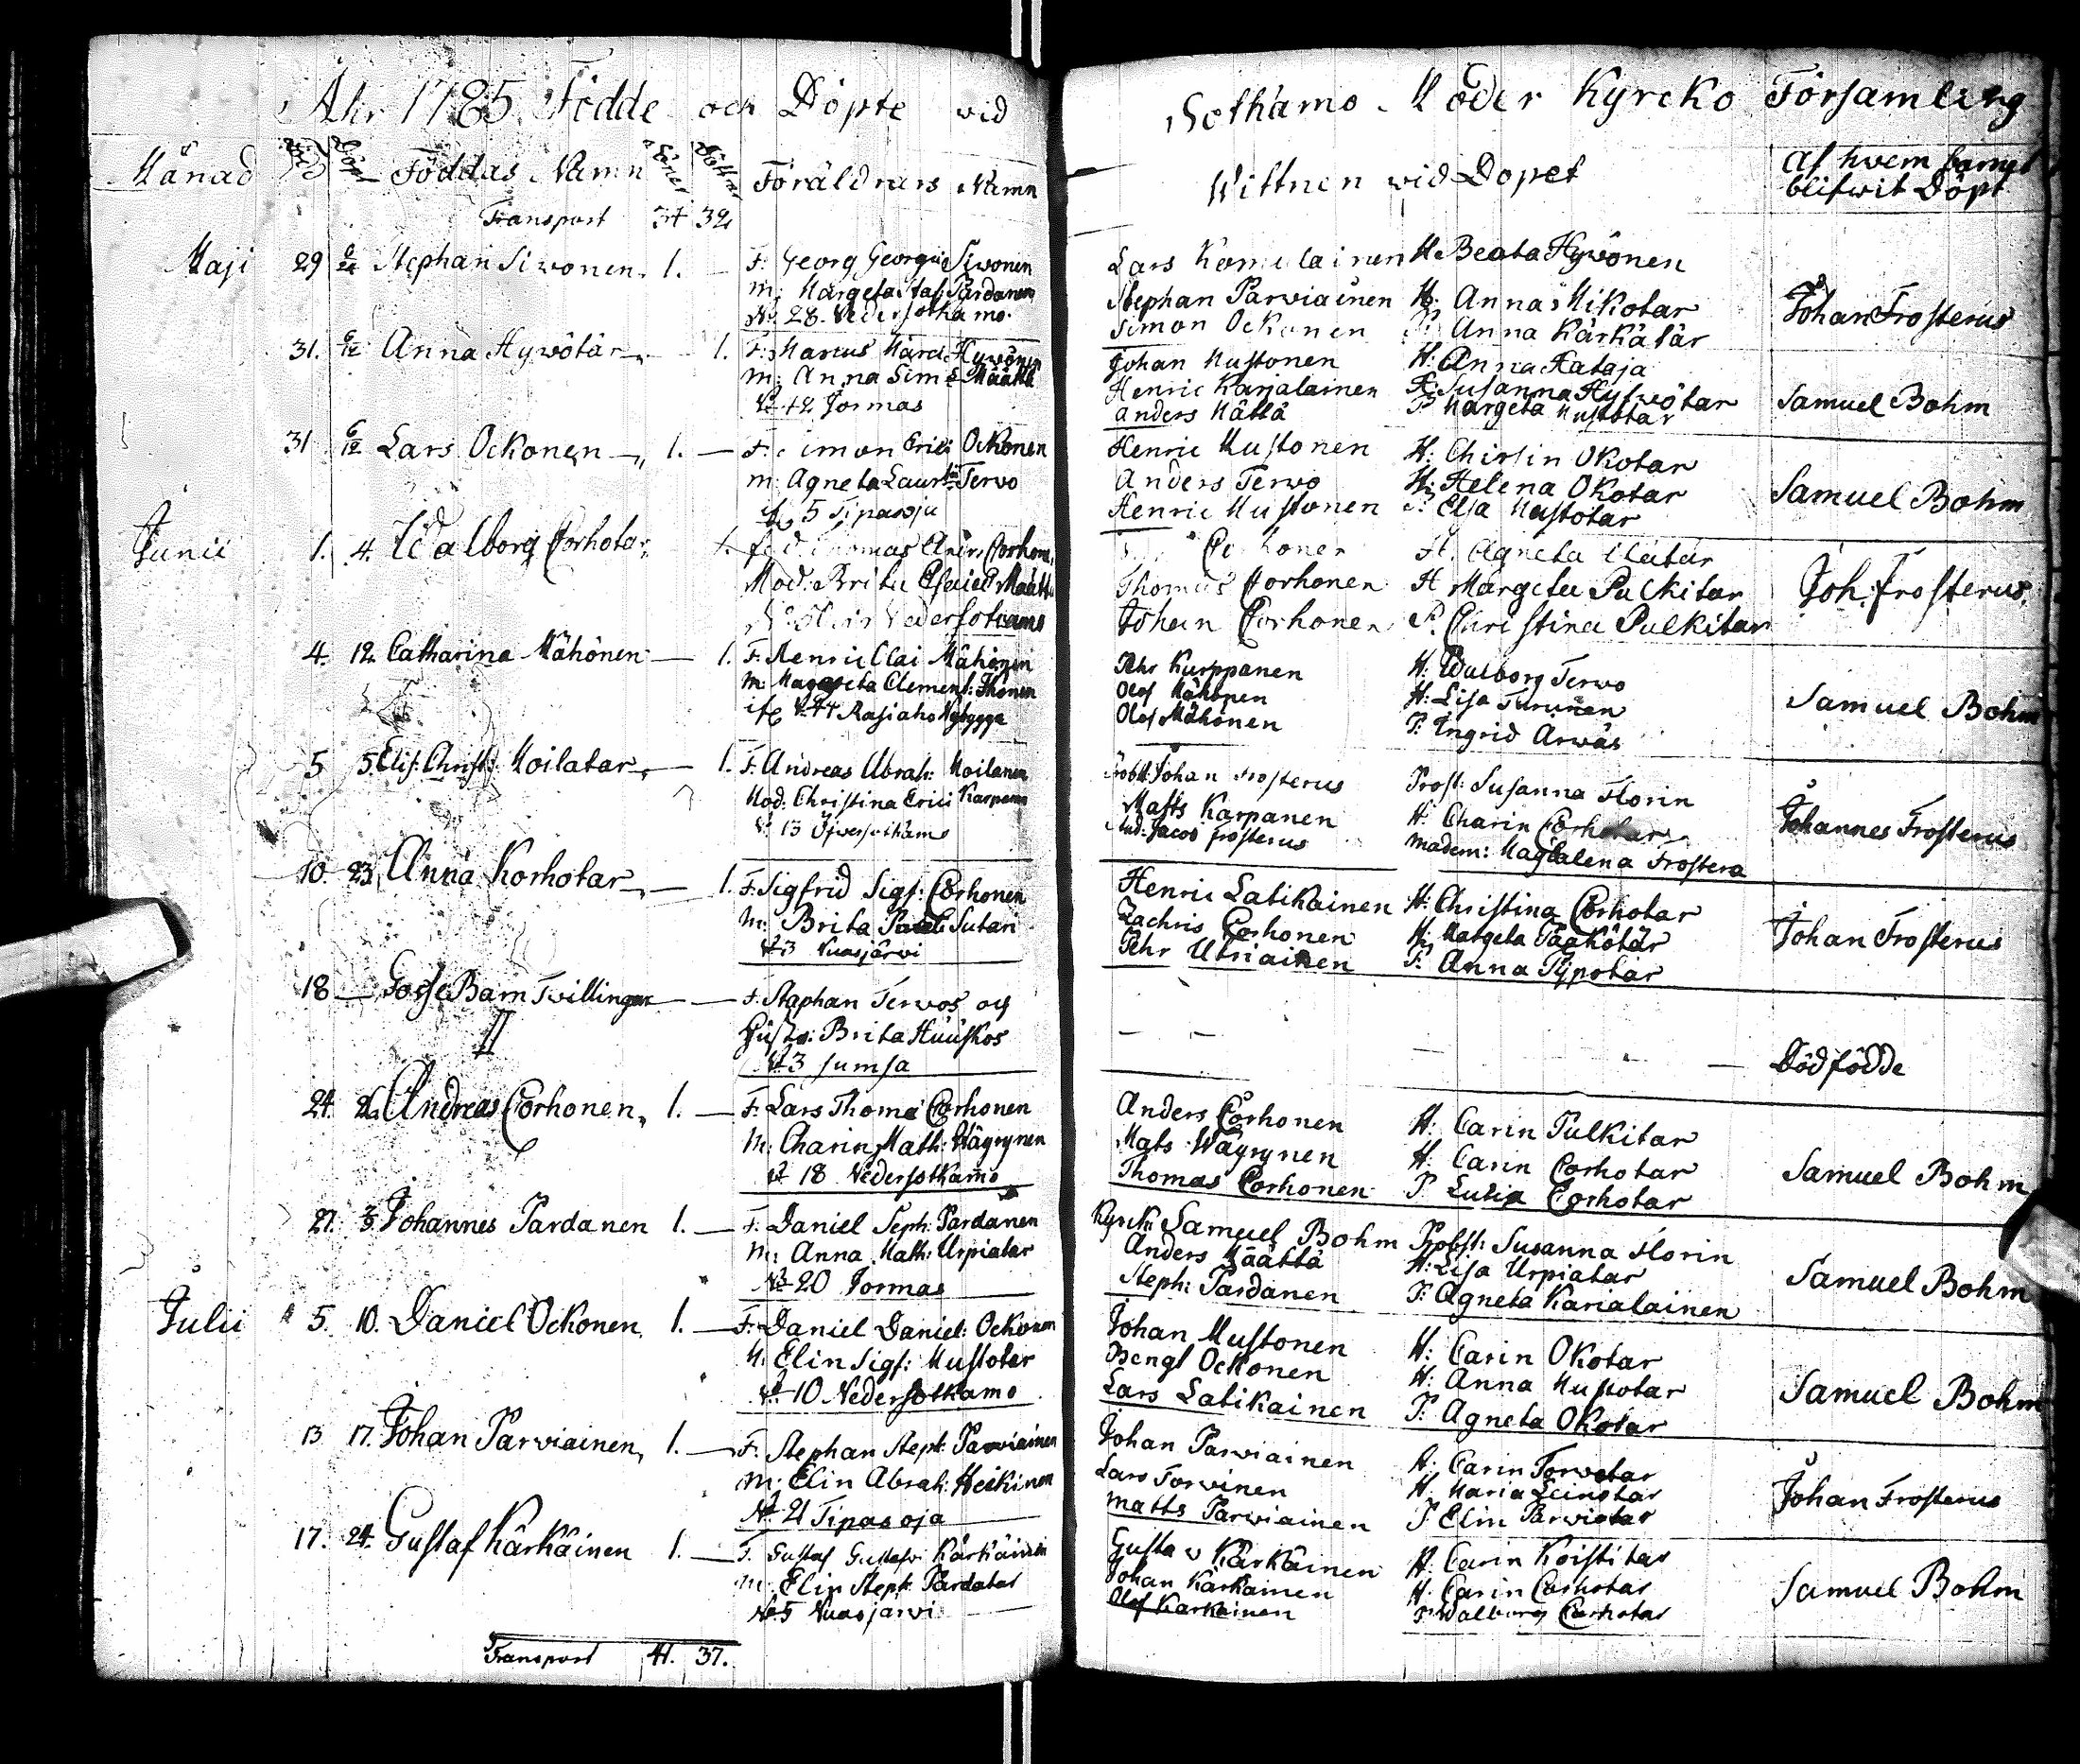 Åhr 1785 Födde och Döpte vid
Månad Föddas Namn Söner Döttrar Föräldrars Namn
Transport 34 32
Maji 29 6/24 Stephan Siwonen 1. — F: Georg Georgii Siwonen
M: Margeta Staf: Pardanen
No. 28. Nedersotkamo.
31. 6/12 Anna Hywötär — 1. F: Marcus Marci Hywönen
M: Anna Sim: Määttä
No 42 Jormas
31 6/12 Lars Ockonen — 1. — F: Simon Erici Ockonen
M: Agneta Laurs: Terwo
No 5 Tipasoja
Junii 1. 4. Walborg Corhotar 1. Fad. Thomas Anders Corhonen
Mod: Brita Esaie Määttä
Nedersotcamo
4. 12. Catharina Mähönen — 1. F. Henric Clai Mähönen
M: Margreta Clement: Ihönen
No 44 Rasiaho Nybygge
5 5. Elis: Christ: Moilatar — 1. F. Andreas Abrah: Moilanen
Mod: Christina Erici Karpanen
No 13 Öfwersotkamo
10. 23. Anna Korhotar — 1. F. Sigfrid Sigf: Corhonen
M: Brita Paul: Sutari
No 3 Nuasjärwi
18 — Gosse Barn Twillingar — — F. Staphan Terwos och
II Hustr: Brita Huuskos
No 3 Sumsa
24. 26. Andreas Corhonen 1. — F. Lars Thomæ Corhonen
M: Charin Math: Wäyrynen
No 18 Nedersotkamo
27. Johannes Pardanen 1. — F. Daniel Steph: Pardanen
M: Anna Math: Urpiatar
No 20 Jormas
Julii 5. 10. Daniel Ockonen 1. — F. Daniel Daniel: Ockonen
M: Elin Sigf: Mustotar
No 10 Nedersotkamo
13 17. Johan Parviainen 1. — F. Stephan Steph: Parviainen
M: Elin Abrah: Heikinen
No 21 Tipasoja
17. 24. Gustaf Kärkäinen 1. — F. Gustaf Gustafvi Kärkäinen
M: Elin Steph: Pardatar
No 5 Nuasjärwi
Transport 41. 37.
Sothamo Moder Kyrcko Församling
Wittnen vid Dopet Af hvem barnet
blifwit Döpt
Lars Komulainen H. Beata Hywönen
Stephan Parviainen H: Anna Mikotar Johan Frosterus
Simon Ockonen P: Anna Kärkätär
Johan Mustonen H: Anna Kataja
Henric Karjalainen H: Susanna Hywötar Samuel Bohm
Anders Mättä P: Margeta Mustotar
Henric Mustonen H: Chirstin Okotar
Anders Terwo H: Helena Okotar Samuel Bohm
Henric Mustonen P: Elsa Mustotar
Corhonen H. Agneta
Thomas Corhonen H Margeta Pulkitar Joh: Frosterus.
Johan Corhonen P. Christina Pulkitar
Pehr Kurppanen H: Walborg Terwo
Olof Mähönen H: Lisa Turunen Samuel Bohm
Olof Mähönen P: Ingrid Arwäs
Probst: Johan Frosterus Prost: Susanna Florin
Matts Karpanen H: Charin Corhotar Johannes Frosterus
Stud: Jacob Frosterus Madem: Magdalena Frostera
Henric Latikainen H: Christina Corhotar
Zachris Corhonen H: Margeta Pääkötär Johan Frosterus
Pehr Utriainen P. Anna Pijpotar
— — — — Dödfödde
Anders Corhonen H: Carin Pulkitar
Mats Wäyrynen H: Carin Corhotar Samuel Bohm
Thomas Corhonen P. Lusia Corhotar
Kyrch: Samuel Bohm Probst: Susanna Florin
Anders Määttä H: Lisa Urpiatar Samuel Bohm
Steph: Pardanen P: Agneta Karialainen
Johan Mustonen H: Carin Okotar
Bengt Ockonen H: Anna Mustotar Samuel Bohm
Lars Latikainen P: Agneta Okotar
Johan Parwiainen H: Carin Torwotar
Lars Torvinen H. Maria Leinotar Johan Frosterus
Matts Parwiainen P Elin Parwiatar
Gustav Kärkäinen H. Carin Koistitar
Johan Kärkäinen H. Carin Corhotar Samuel Bohm
Olof Karkainen P. Walborg Corhotar